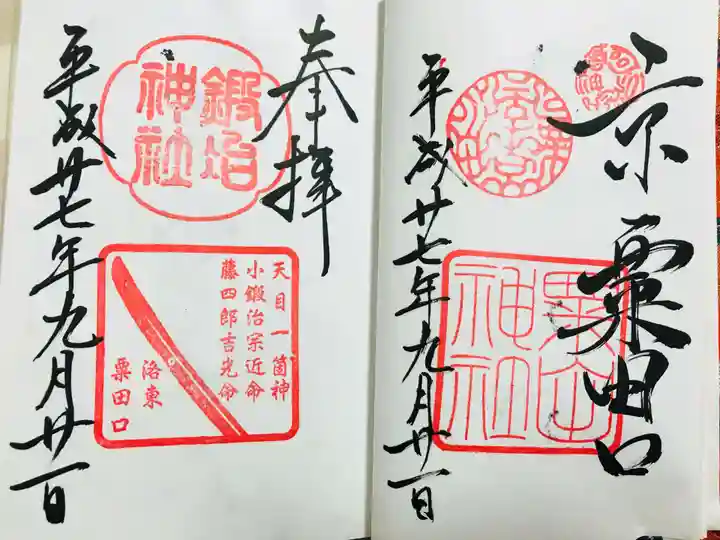 京
粟田口
粟田
神社
平成廿七年九月廿一日
奉拝
鍛冶
神社
天目一箇神
小鍛治宗近命
藤四郎吉光命
洛東
粟田口
平成廿七年九月廿一日